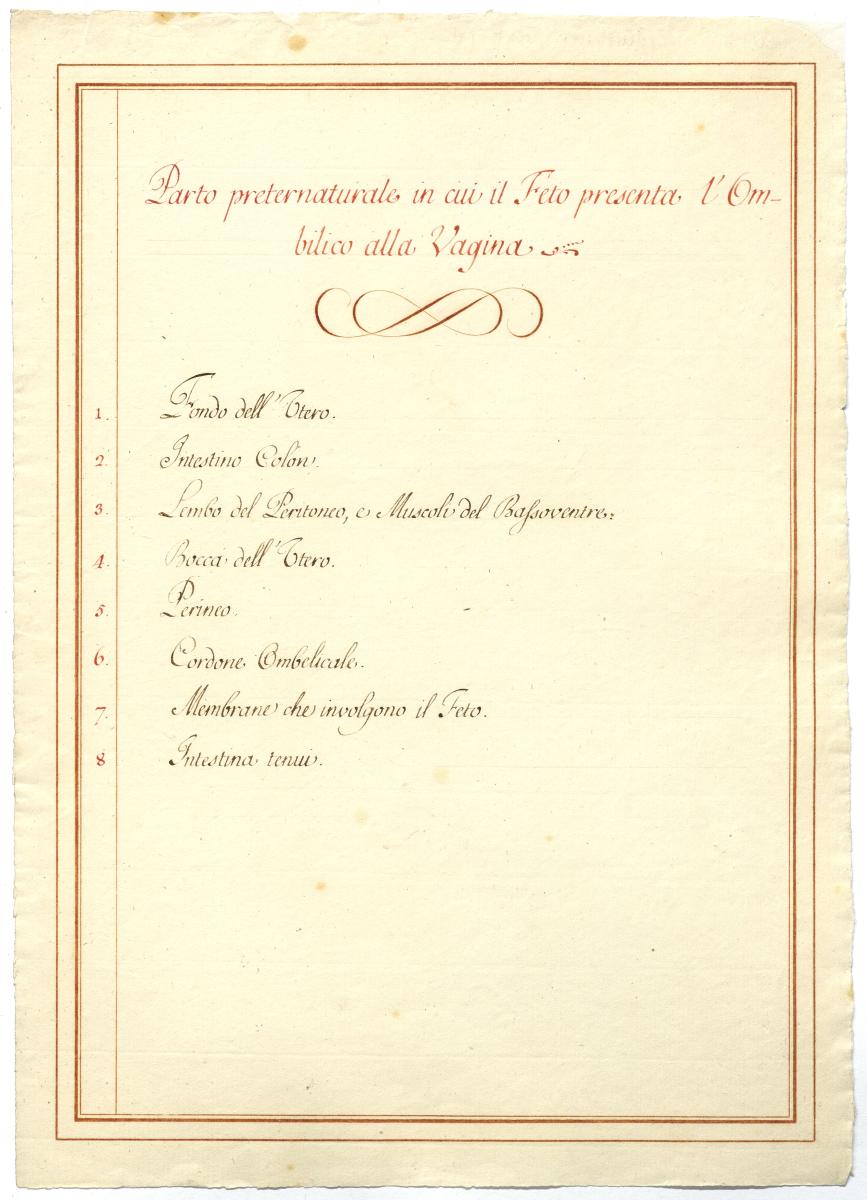 Parto preternaturale in cui il Feto presenta l'Om-
bilico alla Vagina
1. Fondo dell'Utero.
2. Intestino Colon.
3. Lembo del Peritoneo, e Muscoli del Bassoventre.
4. Bocca dell'Utero.
5. Perineo.
6. Cordone Ombelicale.
7. Membrane che involgono il Feto.
8 Intestina tenui.